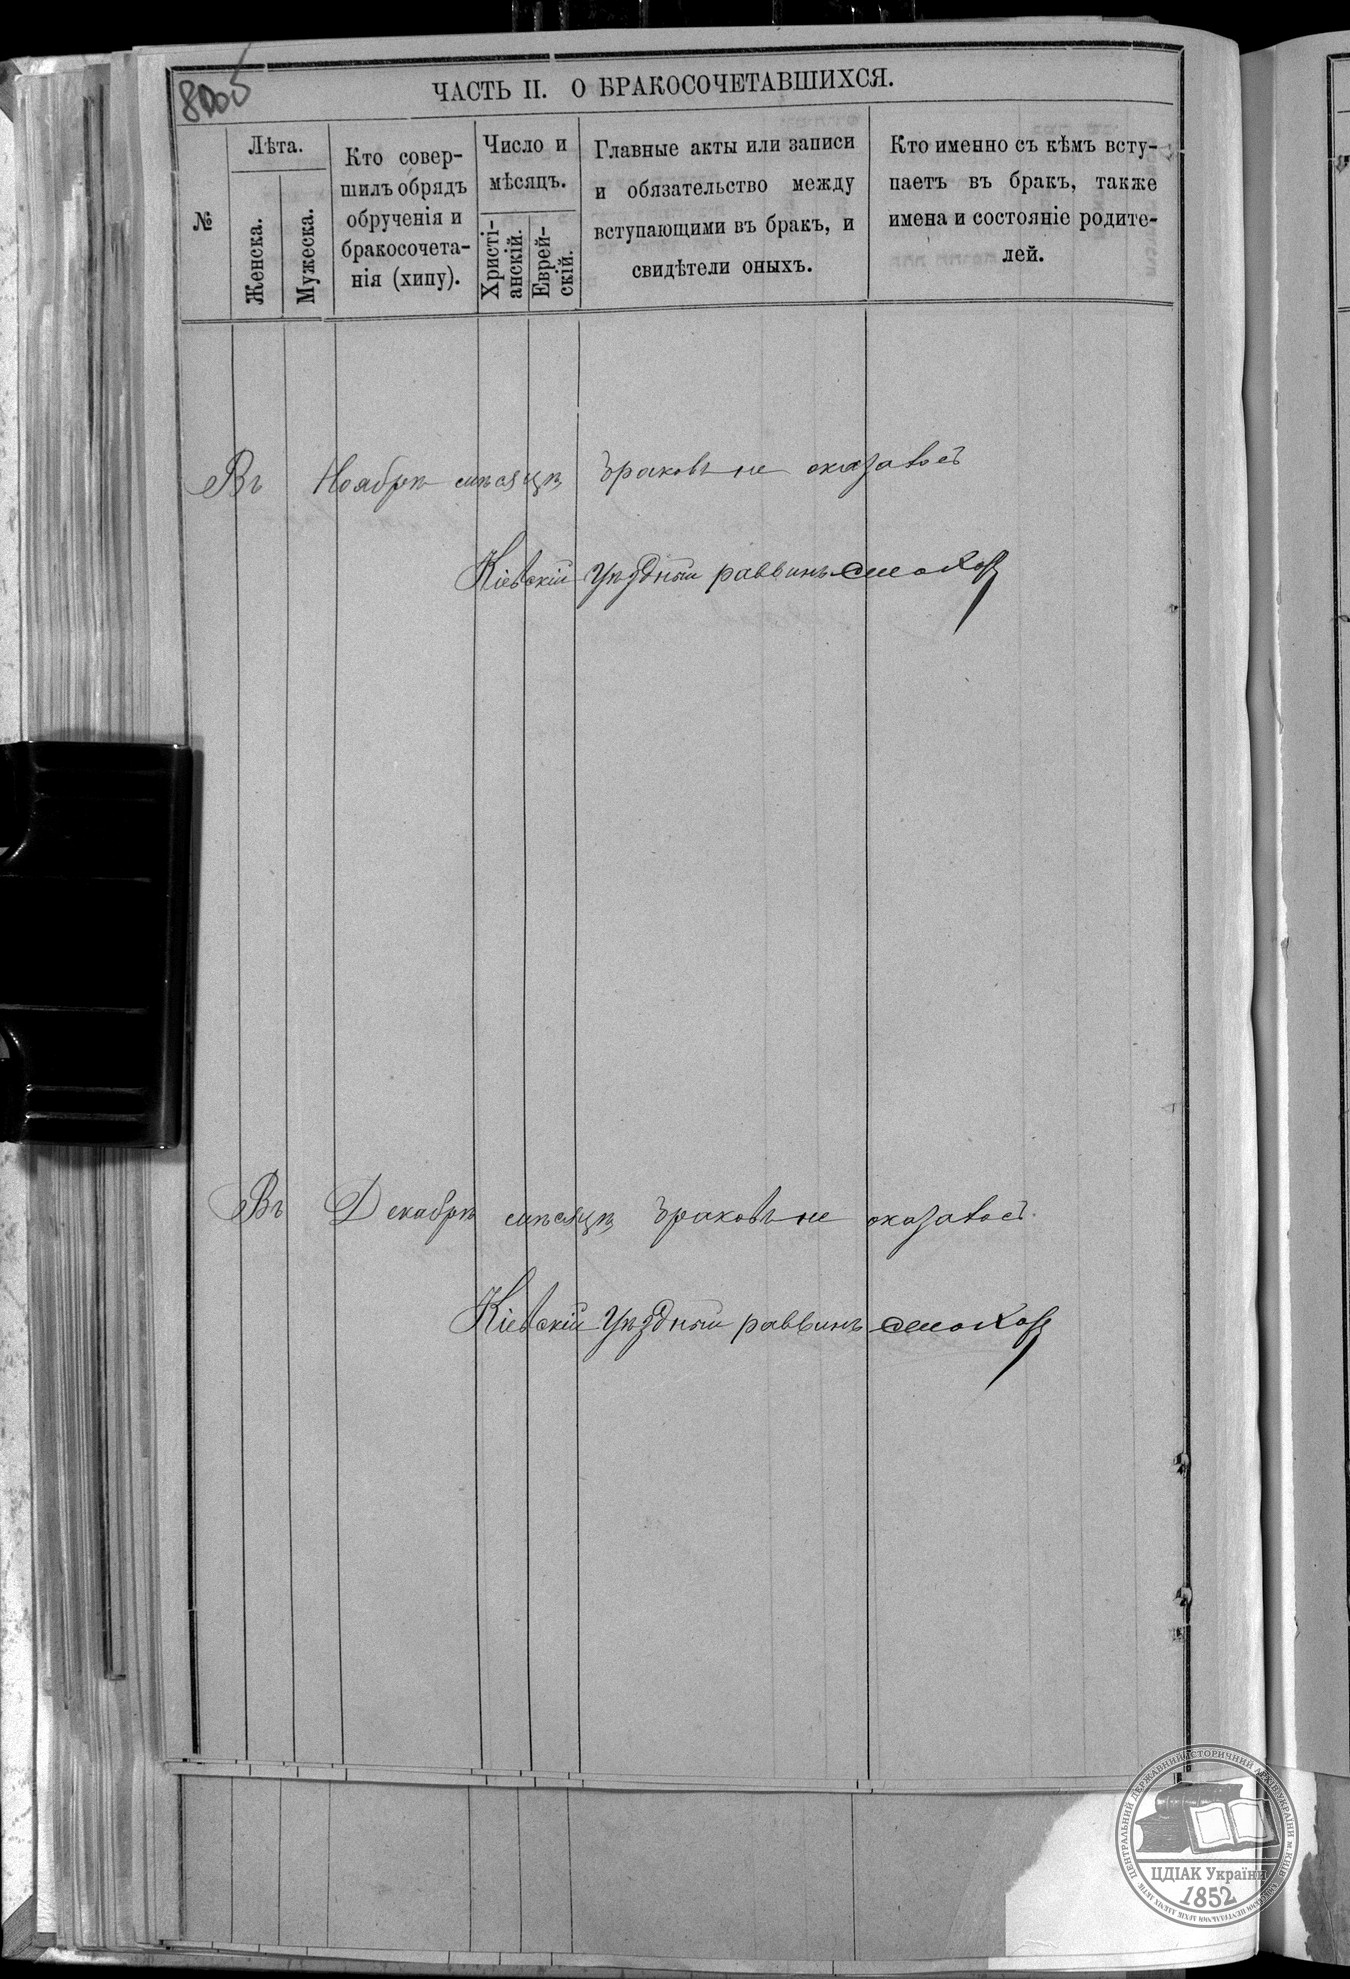 ЧАСТЬ II. О БРАКОСОЧЕТАВШИХСЯ.
№
Лѣта.
Женска.
Мужеска.
Кто совер-
шилъ обрядъ
обрученія и
бракосочета-
нія (хипу).
Число и
мѣсяцъ.
Христі-
анскій.
Еврей-
скій.
Главные акты или записи
и обязательство между
вступающими въ бракъ, и
свидѣтели оныхъ.
Кто именно съ кѣмъ всту-
паетъ въ бракъ, также
имена и состояніе родите-
лей.
Въ Ноябрѣ мѣсяцѣ браковъ не оказалось
Кіевскій Уѣздный раввинъ
Въ Декабрѣ мѣсяцѣ браковъ не оказалось.
Кіевскій Уѣздный раввинъ
ЦЕНТРАЛЬНИЙ ДЕРЖАВНИЙ ІСТОРИЧНИЙ АРХІВ УКРАЇНИ м. КИЇВ
ЦДІАК України
1852